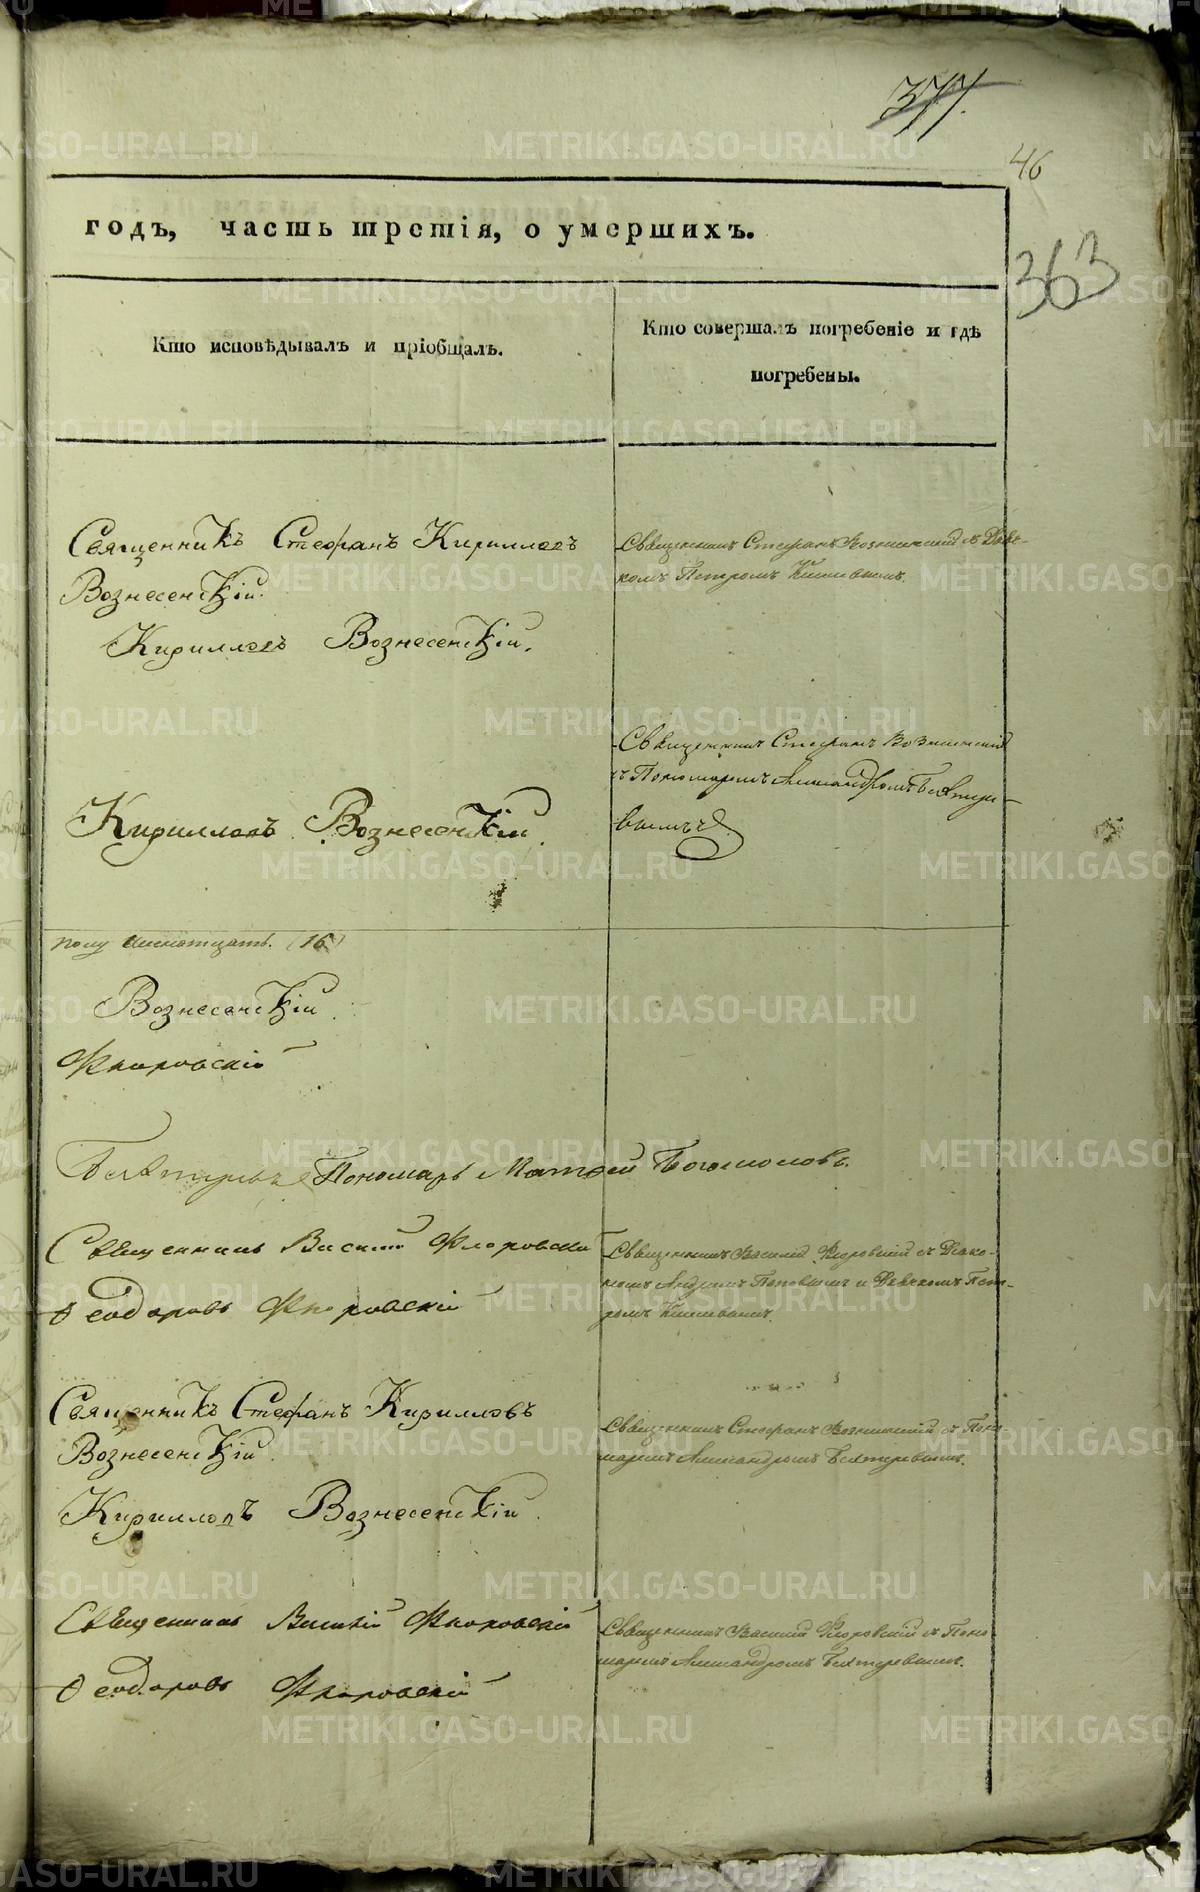 377.
46
363
годъ, часть третія, о умершихъ.
Кто исповѣдывалъ и пріобщалъ.
Кто совершалъ погребеніе и гдѣ
погребены.
Священникъ Стефанъ Кирилловъ
Вознесенскій.
Кирилловъ Вознесенскій.
Священникъ Стефанъ Вознесенскій съ Дьяч-
комъ Петромъ
Священникъ Стефанъ Вознесенскій
съ Пономаремъ Александромъ Бехтере-
вымъ
Кирилловъ Вознесенскій.
полу шестнатцать. (16)
Вознесенскій
Флоровскій
Бехтеревъ Пономарь Матѳей Богомоловъ.
Священникъ Василій Флоровскій
Ѳеодоровъ Флоровскій
Священникъ Василій Флоровскій съ Діако-
номъ Поповымъ и Дьячкомъ Пет-
ромъ
Священникъ Стефанъ Кирилловъ
Вознесенскій
Кирилловъ Вознесенскій.
Священникъ Стефанъ Вознесенскій съ Поно-
маремъ Александромъ Бехтеревымъ.
Священникъ Василій Флоровскій
Ѳеодоровъ Флоровскій
Священникъ Василій Флоровскій съ Поно-
маремъ Александромъ Бехтеревымъ.
METRIKI.GASO-URAL.RU